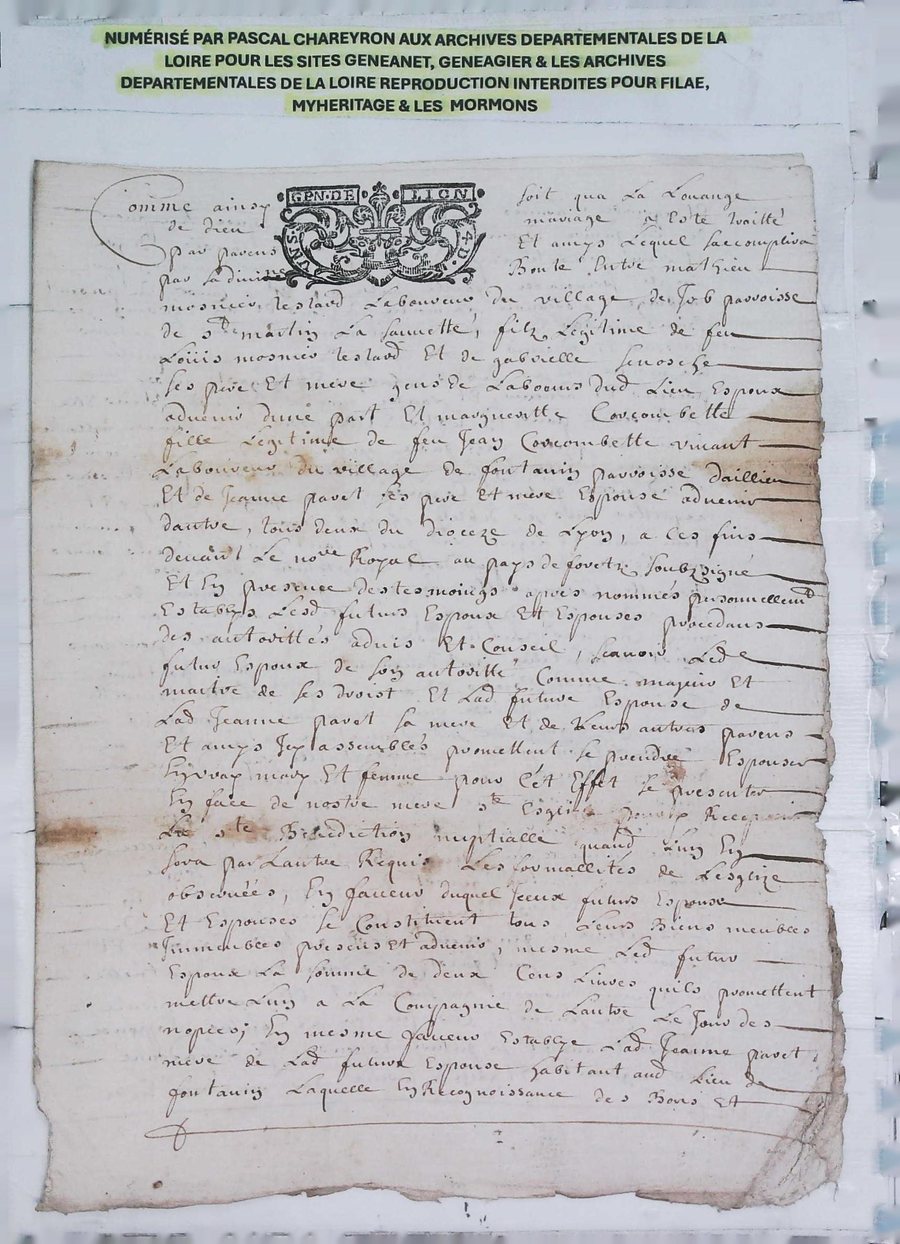 NUMÉRISÉ PAR PASCAL CHAREYRON AUX ARCHIVES DEPARTEMENTALES DE LA
LOIRE POUR LES SITES GENEANET, GENEAGIER & LES ARCHIVES
DEPARTEMENTALES DE LA LOIRE REPRODUCTION INTERDITES POUR FILAE,
MYHERITAGE & LES MORMONS
GEN·DE LION
UN S 4·D·
Comme ainsy soit qua La Louange
de dieu mariage a este traitté
par parens Et amys Lequel saccomplira
par La divine Bonte Entre mathieu
mosnier testard Laboureur du village de Job parroisse
de ste martin La sauvette, filz Legitime de feu
Louis mosnier testard Et de gabrielle
ses pere Et mere gens de Labours dud Lieu Espoux
advenir dune part Et margueritte Corcombette
fille Legitime de feu Jean Corcombette vivant
Laboureur du village de fontanin parroisse daillieu
Et de Jeanne paret ses pere Et mere Espouse advenir
dautre, tous deux du dioceze de Lyon, a ces fins
devant Le nore Royal au pays de foretz soubzsigné
Et En presence des tesmoings apres nommés personnellemt
Establys Lesd futurs Espoux Et Espouses procedans
des autorittés advis Et Conseil, scavoir Led
futur Espoux de son autoritté Comme majeur Et
maitre de ses droist Et Lad future Espouse de
Lad Jeanne paret sa mere Et de Leurs autres parens
Et amys Icy assemblés promettent se prendre Espouser
En vray mary Et femme pour Cét Effet se presenter
En face de nostre mere ste Esglize pour y Recepvoir
La ste Benediction nuptialle quand Lun En
sera par Lautre Requis Les formallites de Lesglize
observées, En faveur duquel Iceux futurs Espoux
Et Espouses se Constituent tous Leurs Biens meubles
Immeubles presens et advenir, mesme Led futur
Espoux La somme de deux Cens Livres quils promettent
mettre Lun a La Compagnie de Lautre Le Jour des
nopces; En mesme faveur Establye Lad Jeanne paret
mere de Lad future Espouse habitant aud Lieu de
fontanin Laquelle En Recognoissance des Bons Et